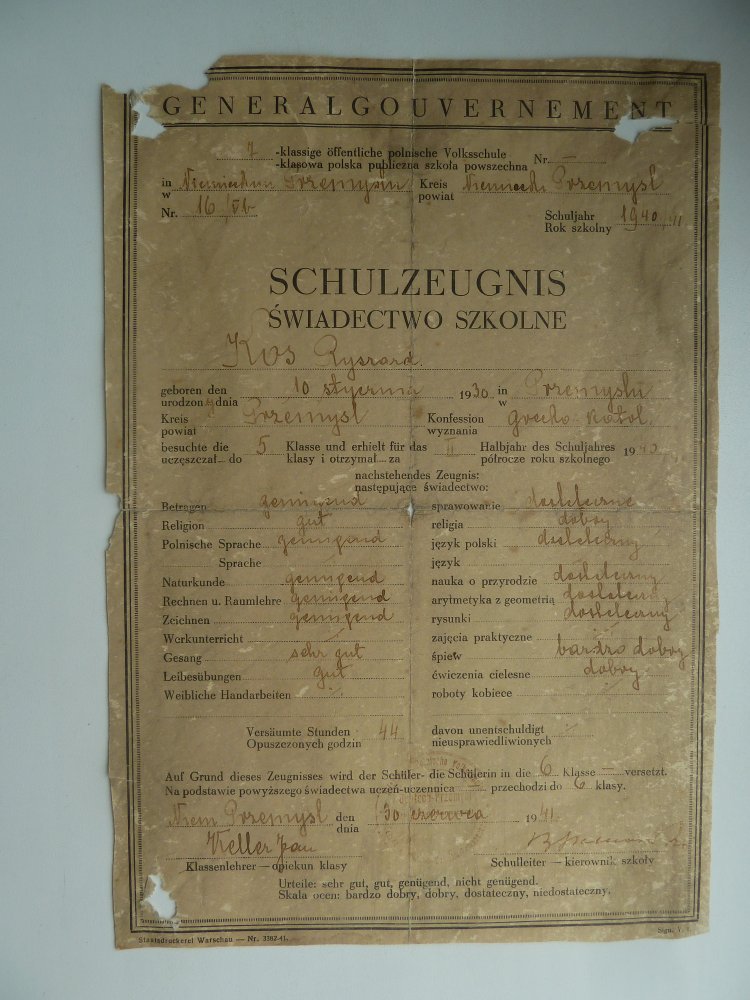 GENERALGOUVERNEMENT
7 -klassige öffentliche polnische Volksschule
-klasowa polska publiczna szkoła powszechna Nr. —
in Przemyślu Kreis Przemyśl
w powiat
Nr. 16/Vb
Schuljahr 1940/41
Rok szkolny
SCHULZEUGNIS
ŚWIADECTWO SZKOLNE
Kos Ryszard.
geboren den 10 stycznia 1930 in Przemyślu
urodzony dnia w
Kreis Przemyśl Konfession grecko-katol.
powiat wyznania
besuchte die 5 Klasse und erhielt für das II Halbjahr des Schuljahres 1940
uczęszczał do klasy i otrzymał za półrocze roku szkolnego
nachstehendes Zeugnis:
następujące świadectwo:
Betragen genügend sprawowanie dostateczne
Religion gut religia dobry
Polnische Sprache genügend język polski dostateczny
Sprache język
Naturkunde genügend nauka o przyrodzie dostateczny
Rechnen u. Raumlehre genügend arytmetyka z geometrią dostateczny
Zeichnen genügend rysunki dostateczny
Werkunterricht zajęcia praktyczne
Gesang sehr gut śpiew bardzo dobry
Leibesübungen gut ćwiczenia cielesne dobry
Weibliche Handarbeiten roboty kobiece
Versäumte Stunden 44 davon unentschuldigt
Opuszczonych godzin nieusprawiedliwionych
Auf Grund dieses Zeugnisses wird der Schüler- die Schülerin in die 6 Klasse — versetzt.
Na podstawie powyższego świadectwa uczeń-uczennica — przechodzi do 6 klasy.
Niem Przemyśl den 30 czerwca 1941.
dnia
Keller Jan
Klassenlehrer — opiekun klasy Schulleiter — kierownik szkoły
Urteile: sehr gut, gut, genügend, nicht genügend.
Skala ocen: bardzo dobry, dobry, dostateczny, niedostateczny.
Staatsdruckerei Warschau — Nr. 3362-41.
Sign. V.